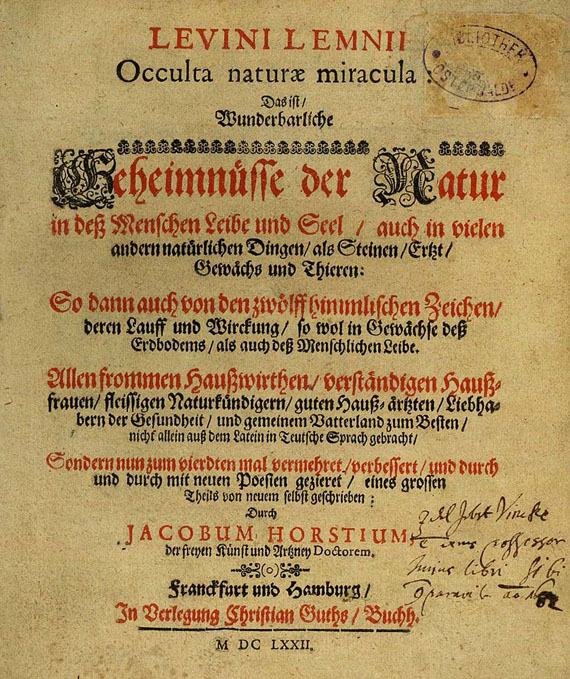 LEVINI LEMNII
Occulta naturæ miracula:
BIBLIOTHEK
Das ist/
Wunderbarliche
Geheimnüsse der Natur
in deß Menschen Leibe und Seel / auch in vielen
andern natürlichen Dingen/ als Steinen/ Ertzt/
Gewächs und Thieren:
So dann auch von den zwölff himmlischen Zeichen/
deren Lauff und Wirckung/ so wol in Gewächse deß
Erdbodems/ als auch deß Menschlichen Leibe.
Allen frommen Haußwirthen/ verständigen Hauß-
frauen/ fleissigen Naturkündigern/ guten Hauß-ärtzten/ Liebha-
bern der Gesundheit/ und gemeinem Vatterland zum Besten/
nicht allein auß dem Latein in Teutsche Sprach gebracht/
Sondern nun zum vierdten mal vermehret/ verbessert/ und durch
und durch mit neuen Poesien gezieret/ eines grossen
Theils von neuem selbst geschrieben:
Durch
JACOBUM HORSTIUM
der freyen Künst und Artzney Doctorem.
professor
libri sibi
Franckfurt und Hamburg/
In Verlegung Christian Guths/ Buchh.
M DC LXXII.